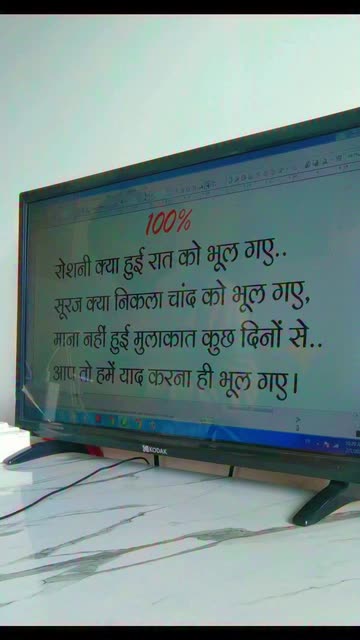 100%
रोशनी क्या हुई रात को भूल गए..
सूरज क्या निकला चांद को भूल गए,
माना नहीं हुई मुलाकात कुछ दिनों से..
आप तो हमें याद करना ही भूल गए।
KODAK